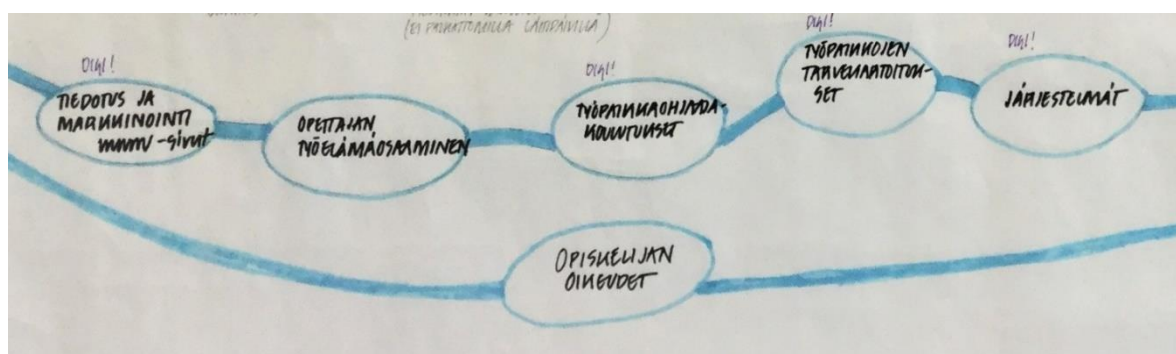 (EI PALKATTOMILLA LÄHIPÄIVILLÄ)
DIGI!
TIEDOTUS JA
MARKKINOINTI
www-sivut
OPETTAJAN
TYÖELÄMÄOSAAMINEN
DIGI!
TYÖPAIKKAOHJAAJA-
KOULUTUKSET
DIGI!
TYÖPAIKKOJEN
TARVEKARTOITUK-
SET
DIGI!
JÄRJESTELMÄT
OPISKELIJAN
OIKEUDET